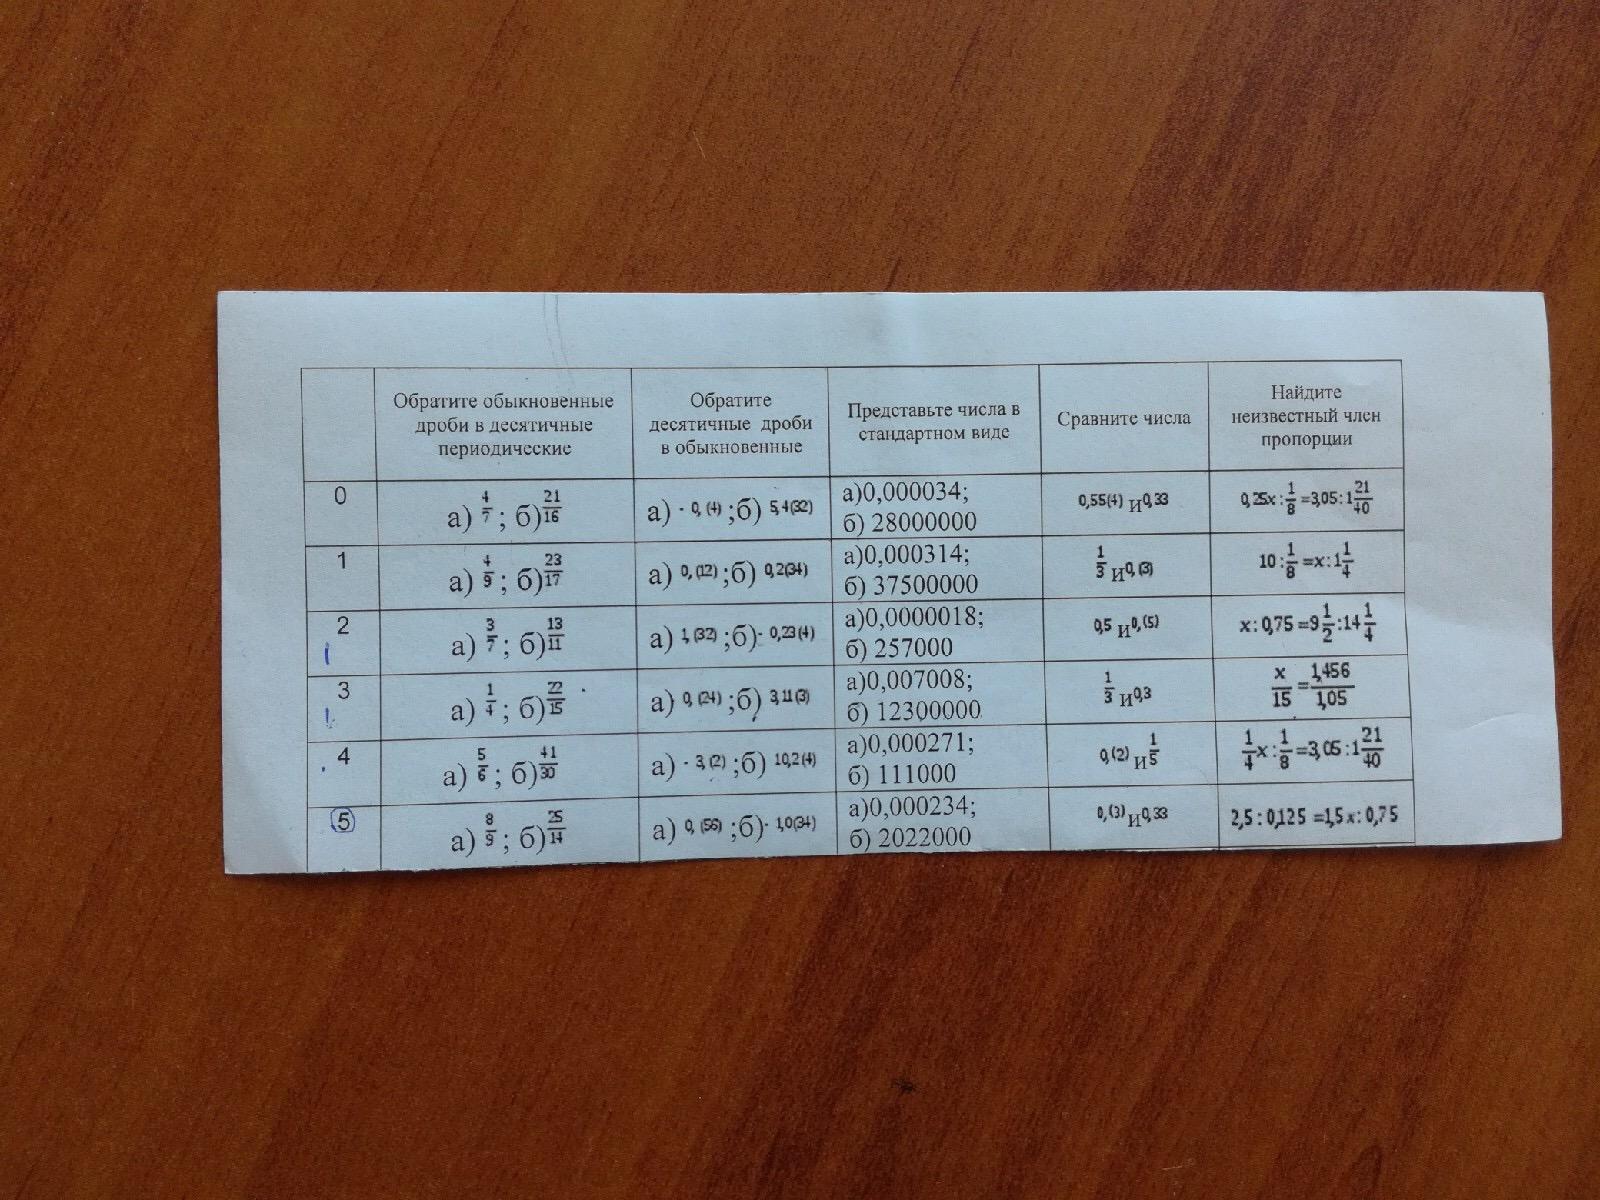 Обратите обыкновенные дроби в десятичные периодические
Обратите десятичные дроби в обыкновенные
Представьте числа в стандартном виде
Сравните числа
Найдите неизвестный член пропорции
0
а) 4/7 ; б) 21/16
а) - 0,(4) ;б) 5,4(32)
а)0,000034;
б) 28000000
0,55(4) и 0,33
0,25x : 1/8 =3,05 : 1 21/40
1
а) 4/9 ; б) 23/17
а) 0,(12) ;б) 0,2(34)
а)0,000314;
б) 37500000
1/3 и 0,(3)
10 : 1/8 =x : 1 1/4
2
а) 3/7 ; б) 13/11
а) 1,(32) ;б) - 0,23(4)
а)0,0000018;
б) 257000
0,5 и 0,(5)
x : 0,75 =9 1/2 : 14 1/4
3
а) 1/4 ; б) 22/15
а) 0,(24) ;б) 3,11(3)
а)0,007008;
б) 12300000
1/3 и 0,3
x/15 = 1,456/1,05
4
а) 5/6 ; б) 41/30
а) - 3,(2) ;б) 10,2(4)
а)0,000271;
б) 111000
0,(2) и 1/5
1/4 x : 1/8 =3,05 : 1 21/40
5
а) 8/9 ; б) 25/14
а) 0,(56) ;б) - 1,0(34)
а)0,000234;
б) 2022000
0,(3) и 0,33
2,5 : 0,125 =1,5x : 0,75